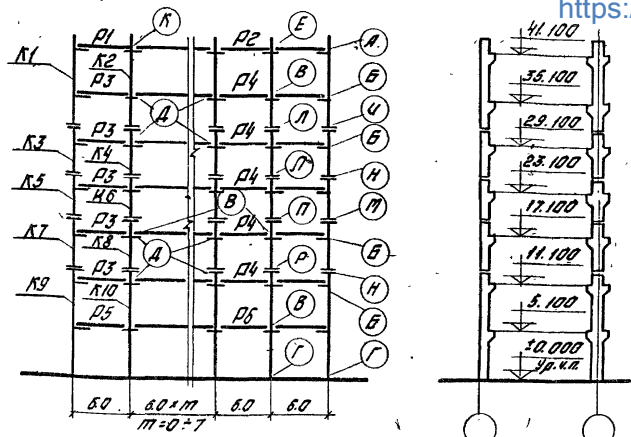 https:/
К Е А
Р1 Р2
К1 К2
Р3 Р4 В Б
Д Л И
Р3 Р4 Б
К3 К4
Р3 Р4 Н
К5 К6 В П М
Р3 Р4
К7 К8 Д Р Б
Р3 Р4 Н
К9 К10
Р5 Р6 В Б
Г Г
6.0 6.0 × m 6.0 6.0
m=0÷7
41.100
35.100
29.100
23.100
17.100
11.100
5.100
±0.000
Ур.ч.п.